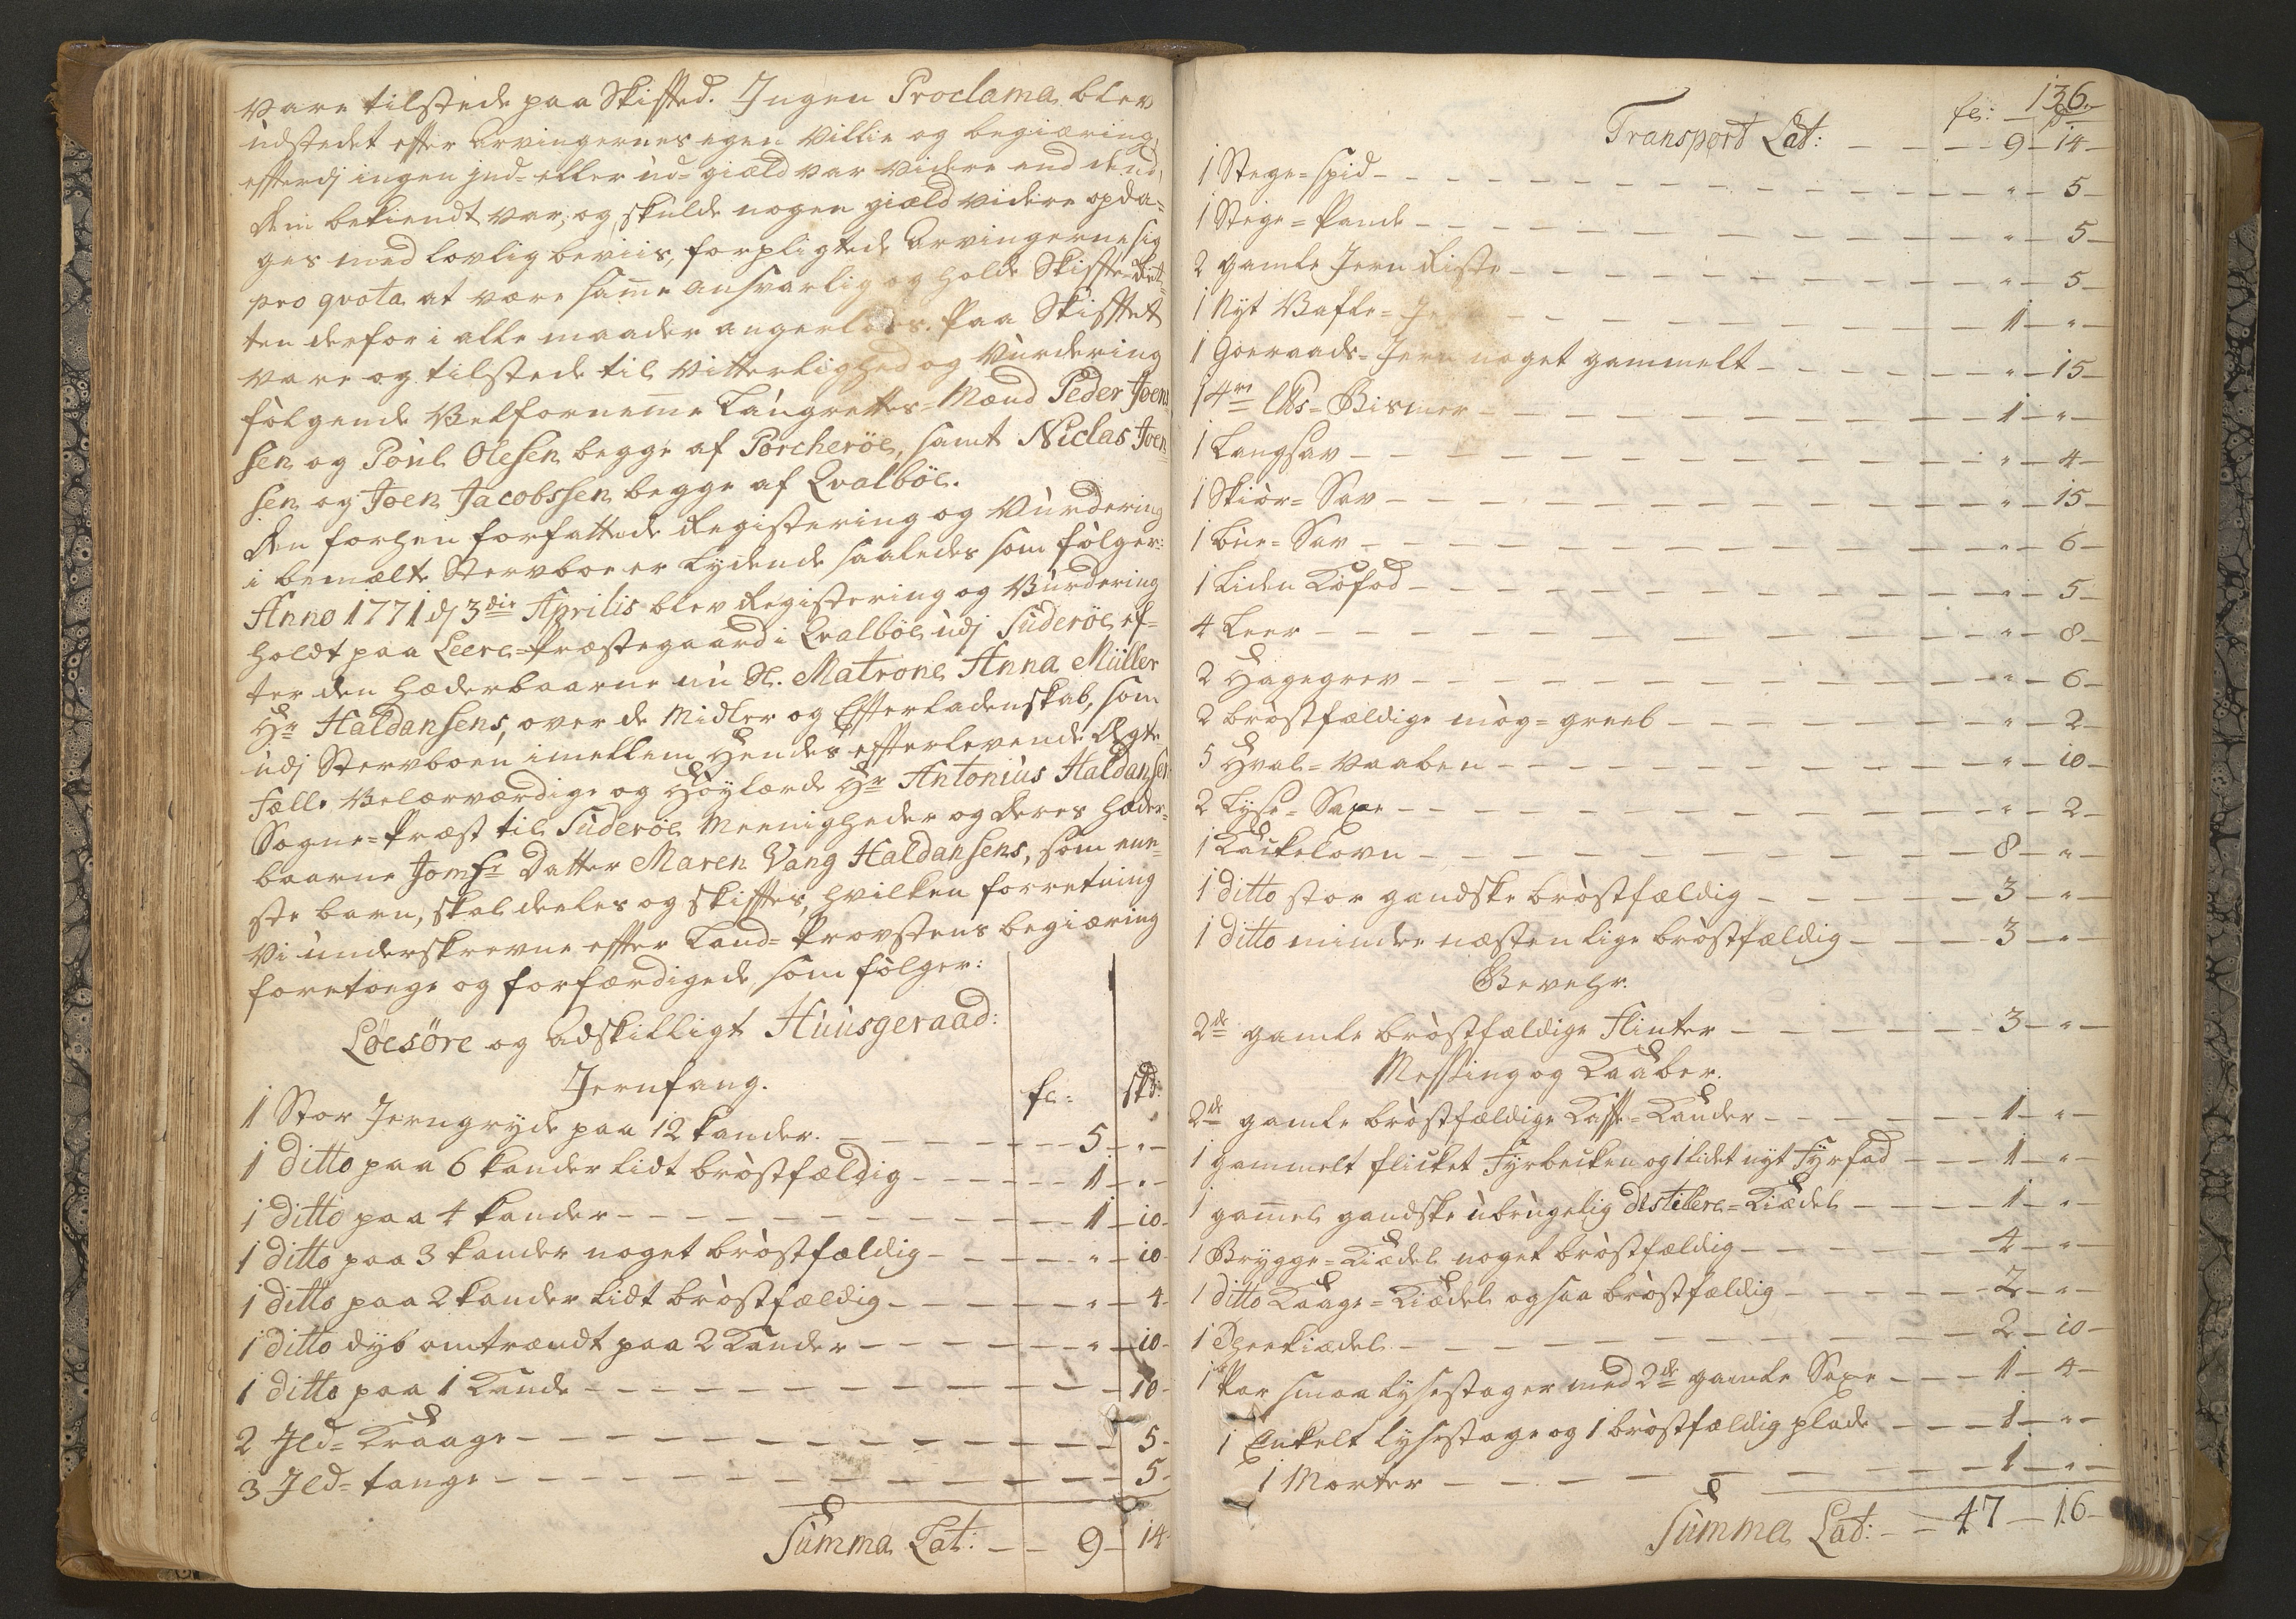 vare tilstede paa Skifted. Ingen Proclama blev
udstedet efter Arvingernes egen Villie og begiæring,
efterdj ingen jnd- eller ud- giæld var videre end dend,
dem bekiendt var; og skulde nogen giæld videre opda-
ges med lovlig beviis, forpligtede Arvingerne sig
pro qvota at være samme ansvarlig og holde Skifte-Ret-
ten derfor i alle maader angerløes. Paa Skiftet
vare og tilstede til Vitterlighed og Vurdering
følgende Velfornemme Laugrettes-Mænd Peder Joens-
sen og Poul Olesen begge af Porcheröe, samt Niclas Joen-
sen og Joen Jacobssen begge af Qvalböe.
Den forhen forfattede Registering og Vurdering
i bemælte Stervboe er lydende saaledes som følger:
Anno 1771 dj 3die Aprilis blev Registering og Vurdering
holdt paa Leere-Præstegaard i Qvalböe udj Suderöe ef-
ter den hæderbaarne nu Sl. Matrone Anna Müller
Hr Haldansens, over de Midler og Efterladenskab, som
udj Stervboen imellem Hendes efterlevende Ægte-
fælle Velærværdige og Höylærde Hr Antonius Haldansen
Sogne-Præst til Suderöe Meenigheder og deres hæder-
baarne Jomfr Datter Maren Vang Haldansens, som een-
ste barn, skal deeles og skiftes, hvilken forretning
Vi underskrevne efter Land-Provstens begiæring
foretoge og forfærdigede, som følger:
Löesöre og Adskilligt Huusgeraad:
Jernfang. fl: sk:
1 Stor Jerngryde paa 12 kander. — 5 - " -
1 ditto paa 6 kander lidt bröstfældig — 1 - " -
1 ditto paa 4 kander — 1 - 10 -
1 ditto paa 3 kander noget bröstfældig — " - 10 -
1 ditto paa 2 kander lidt bröstfældig — " - 4 -
1 ditto dyb omtrændt paa 2 Kander — " - 10 -
1 ditto paa 1 Kande — 10 -
2 Jld-Kraage — 5 -
3 Jld-tange — 5 -
Summa Lat: — 9 - 14
136.
fl: ß:
Transport Lat: — 9 - 14 -
1 Stege-spid — " - 5 -
1 Stege-Pande — " - 5 -
2 gamle Jern Riste — " - 5 -
1 Nyt Vafle-Jern — 1 - " -
1 Goeraads-Jern noget gammelt — " - 15 -
1 4re Lbs-Bismer — 1 - " -
1 Langsav — " - 4 -
1 Skiör-Sav — " - 15 -
1 Bue-Sav — " - 6 -
1 liden Kofod — " - 5 -
4 Leer — " - 8 -
2 Hagegrev — " - 6 -
2 bröstfældige mög-greeb — " - 2 -
5 Hval-Vaaben — " - 10 -
2 Lyse-Saxe — " - 2 -
1 Kackelovn — 8 - " -
1 ditto stor gandske bröstfældig — 3 - " -
1 ditto mindre næsten lige bröstfældig — 3 - " -
Gevehr.
2de gamle bröstfældige Flinter — 3 - " -
Messing og Kaaber.
2de gamle bröstfældige Caffe-Kander — 1 - " -
1 gammelt flicket Fyrbecken og 1 lidet nyt Fyrfad — 1 - " -
1 gammel gandske ubrugelig distilere-Kiædel — 1 - " -
1 Brygge-Kiædel noget bröstfældig — 4 - " -
1 ditto Kaage-Kiædel ogsaa bröstfældig — 2 - " -
1 Theekiædel — 2 - 10 -
1 Par smaa lysestager med 2de gamle Saxe — 1 - 4 -
1 Enkelt lysestage og 1 bröstfældig plade — 1 - " -
1 Morter — 1 - " -
Summa Lat: — 47 - 16 -